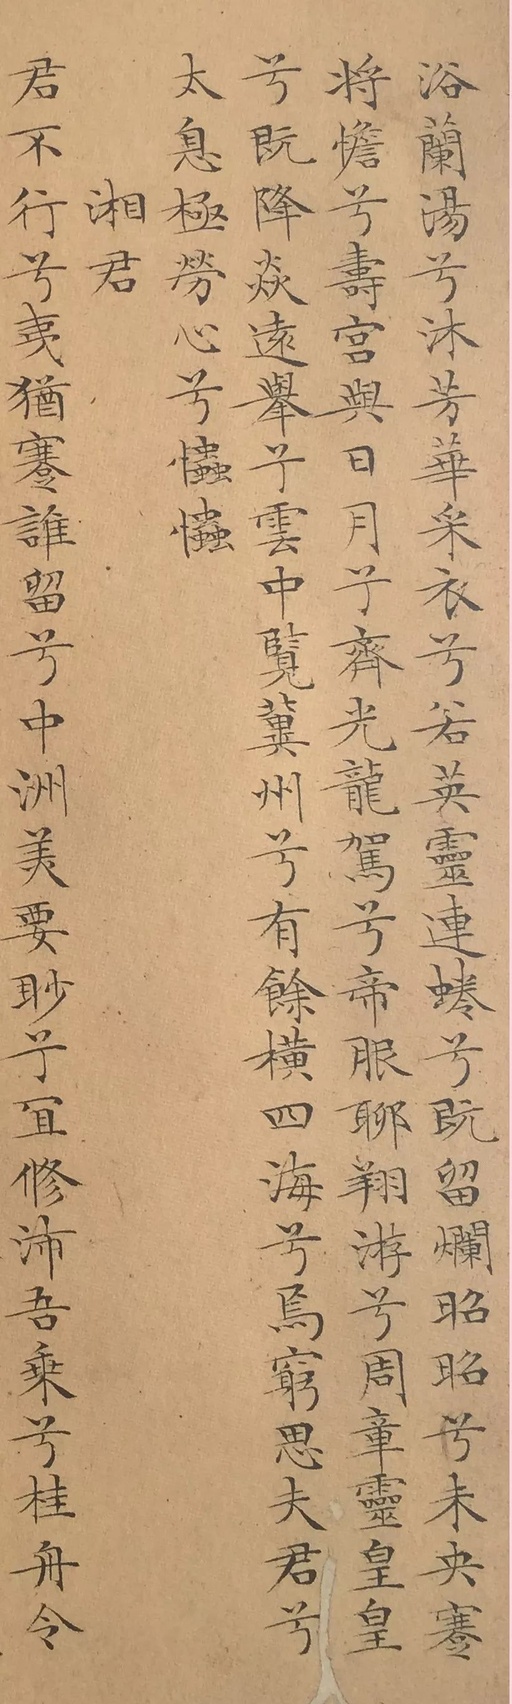 浴蘭湯兮沐芳華采衣兮若英靈連蜷兮既留爛昭昭兮未央蹇
将憺兮壽宮與日月兮齊光龍駕兮帝服聊翔游兮周章靈皇皇
兮既降焱遠舉兮雲中覽冀州兮有餘橫四海兮焉窮思夫君兮
太息極勞心兮𢥞𢥞
湘君
君不行兮夷猶蹇誰留兮中洲美要眇兮宜修沛吾乗兮桂舟令